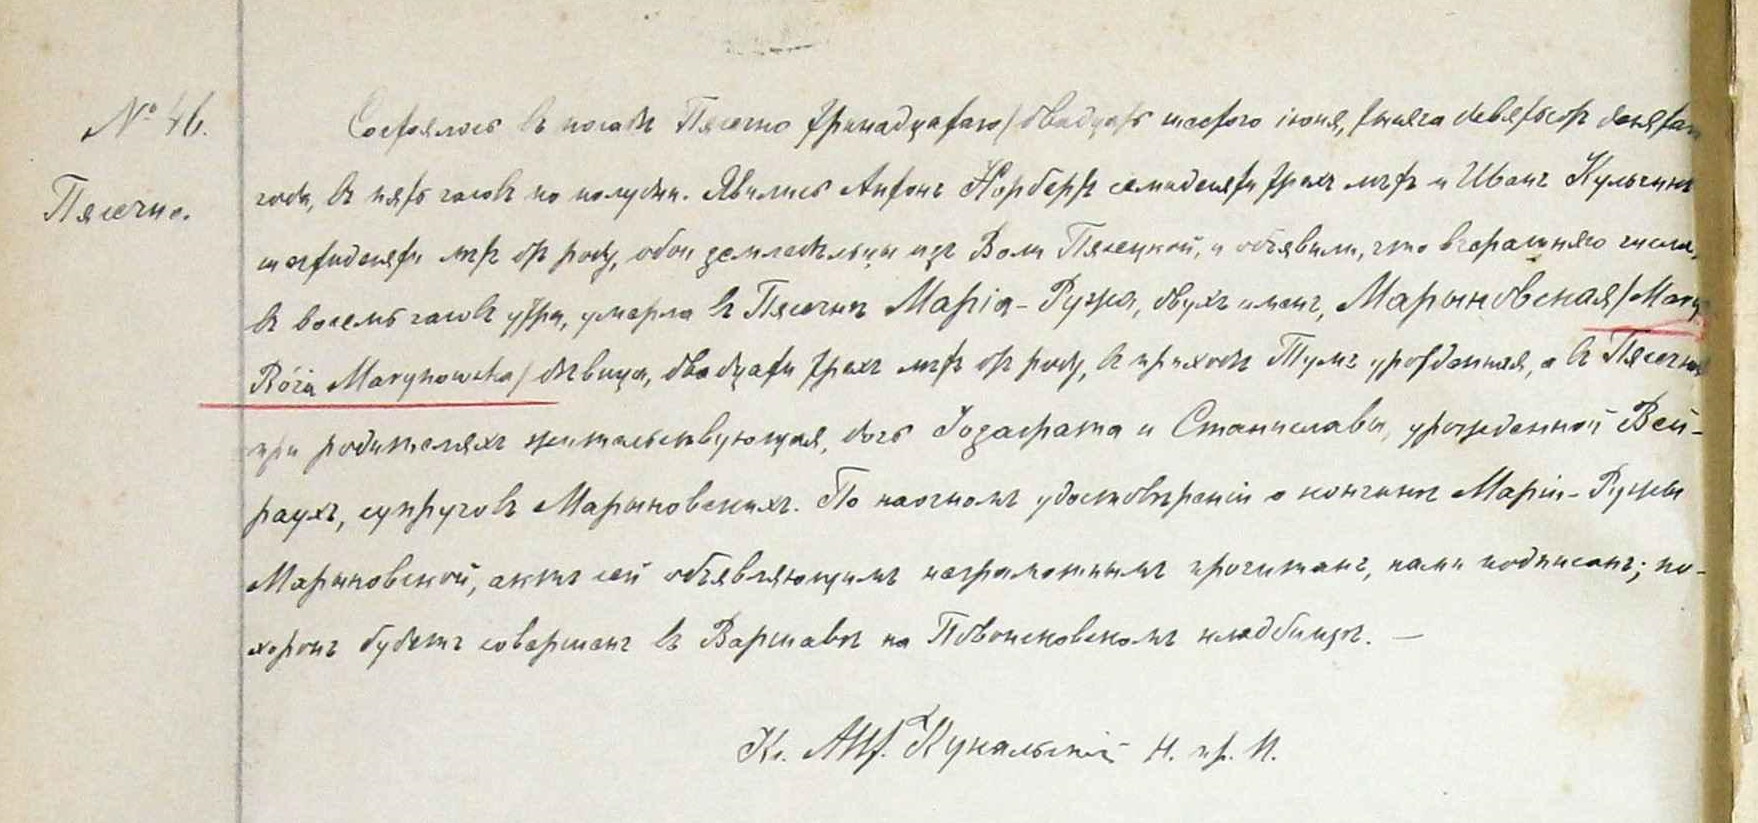 № 46.
Пясечно.
Состоялось въ посадѣ Пясечно тринадцатаго/двадцать шестого іюня, тысяча девятьсотъ десятаго
года, въ пять часовъ по полудни. Явились Антонъ Норбертъ семидесяти трехъ лѣтъ и Иванъ Кульчикъ
шестидесяти лѣтъ отъ роду, обои земледѣльцы изъ Воли Пясецкой, и объявили, что вчерашняго числа,
въ восемь часовъ утра, умерла въ Пясечнѣ Марія-Ружа, двухъ именъ, Марыновская/Marya
Róża Marynowska/ дѣвица, двадцати трехъ лѣтъ отъ роду, въ приходѣ Тумъ урожденная, а въ Пясечнѣ
при родителяхъ жительствующая, дочь Іозафата и Станиславы, урожденной Вей-
раухъ, супруговъ Марыновскихъ. По наочномъ удостовѣреніи о кончинѣ Маріи-Ружи
Марыновской, актъ сей объявляющимъ неграмотнымъ прочитанъ, нами подписанъ; по-
хоронъ будетъ совершенъ въ Варшавѣ на Повонсковскомъ кладбищѣ. —
Кс. Ант. Кунальскій Н. пр. П.